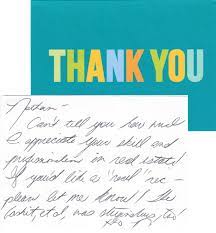 THANK YOU
Nathan -
Can't tell you how much
I appreciate your skill and
professionalism in real estate!
If you'd like a "real" rec -
please let me know! The
basket, et al, was